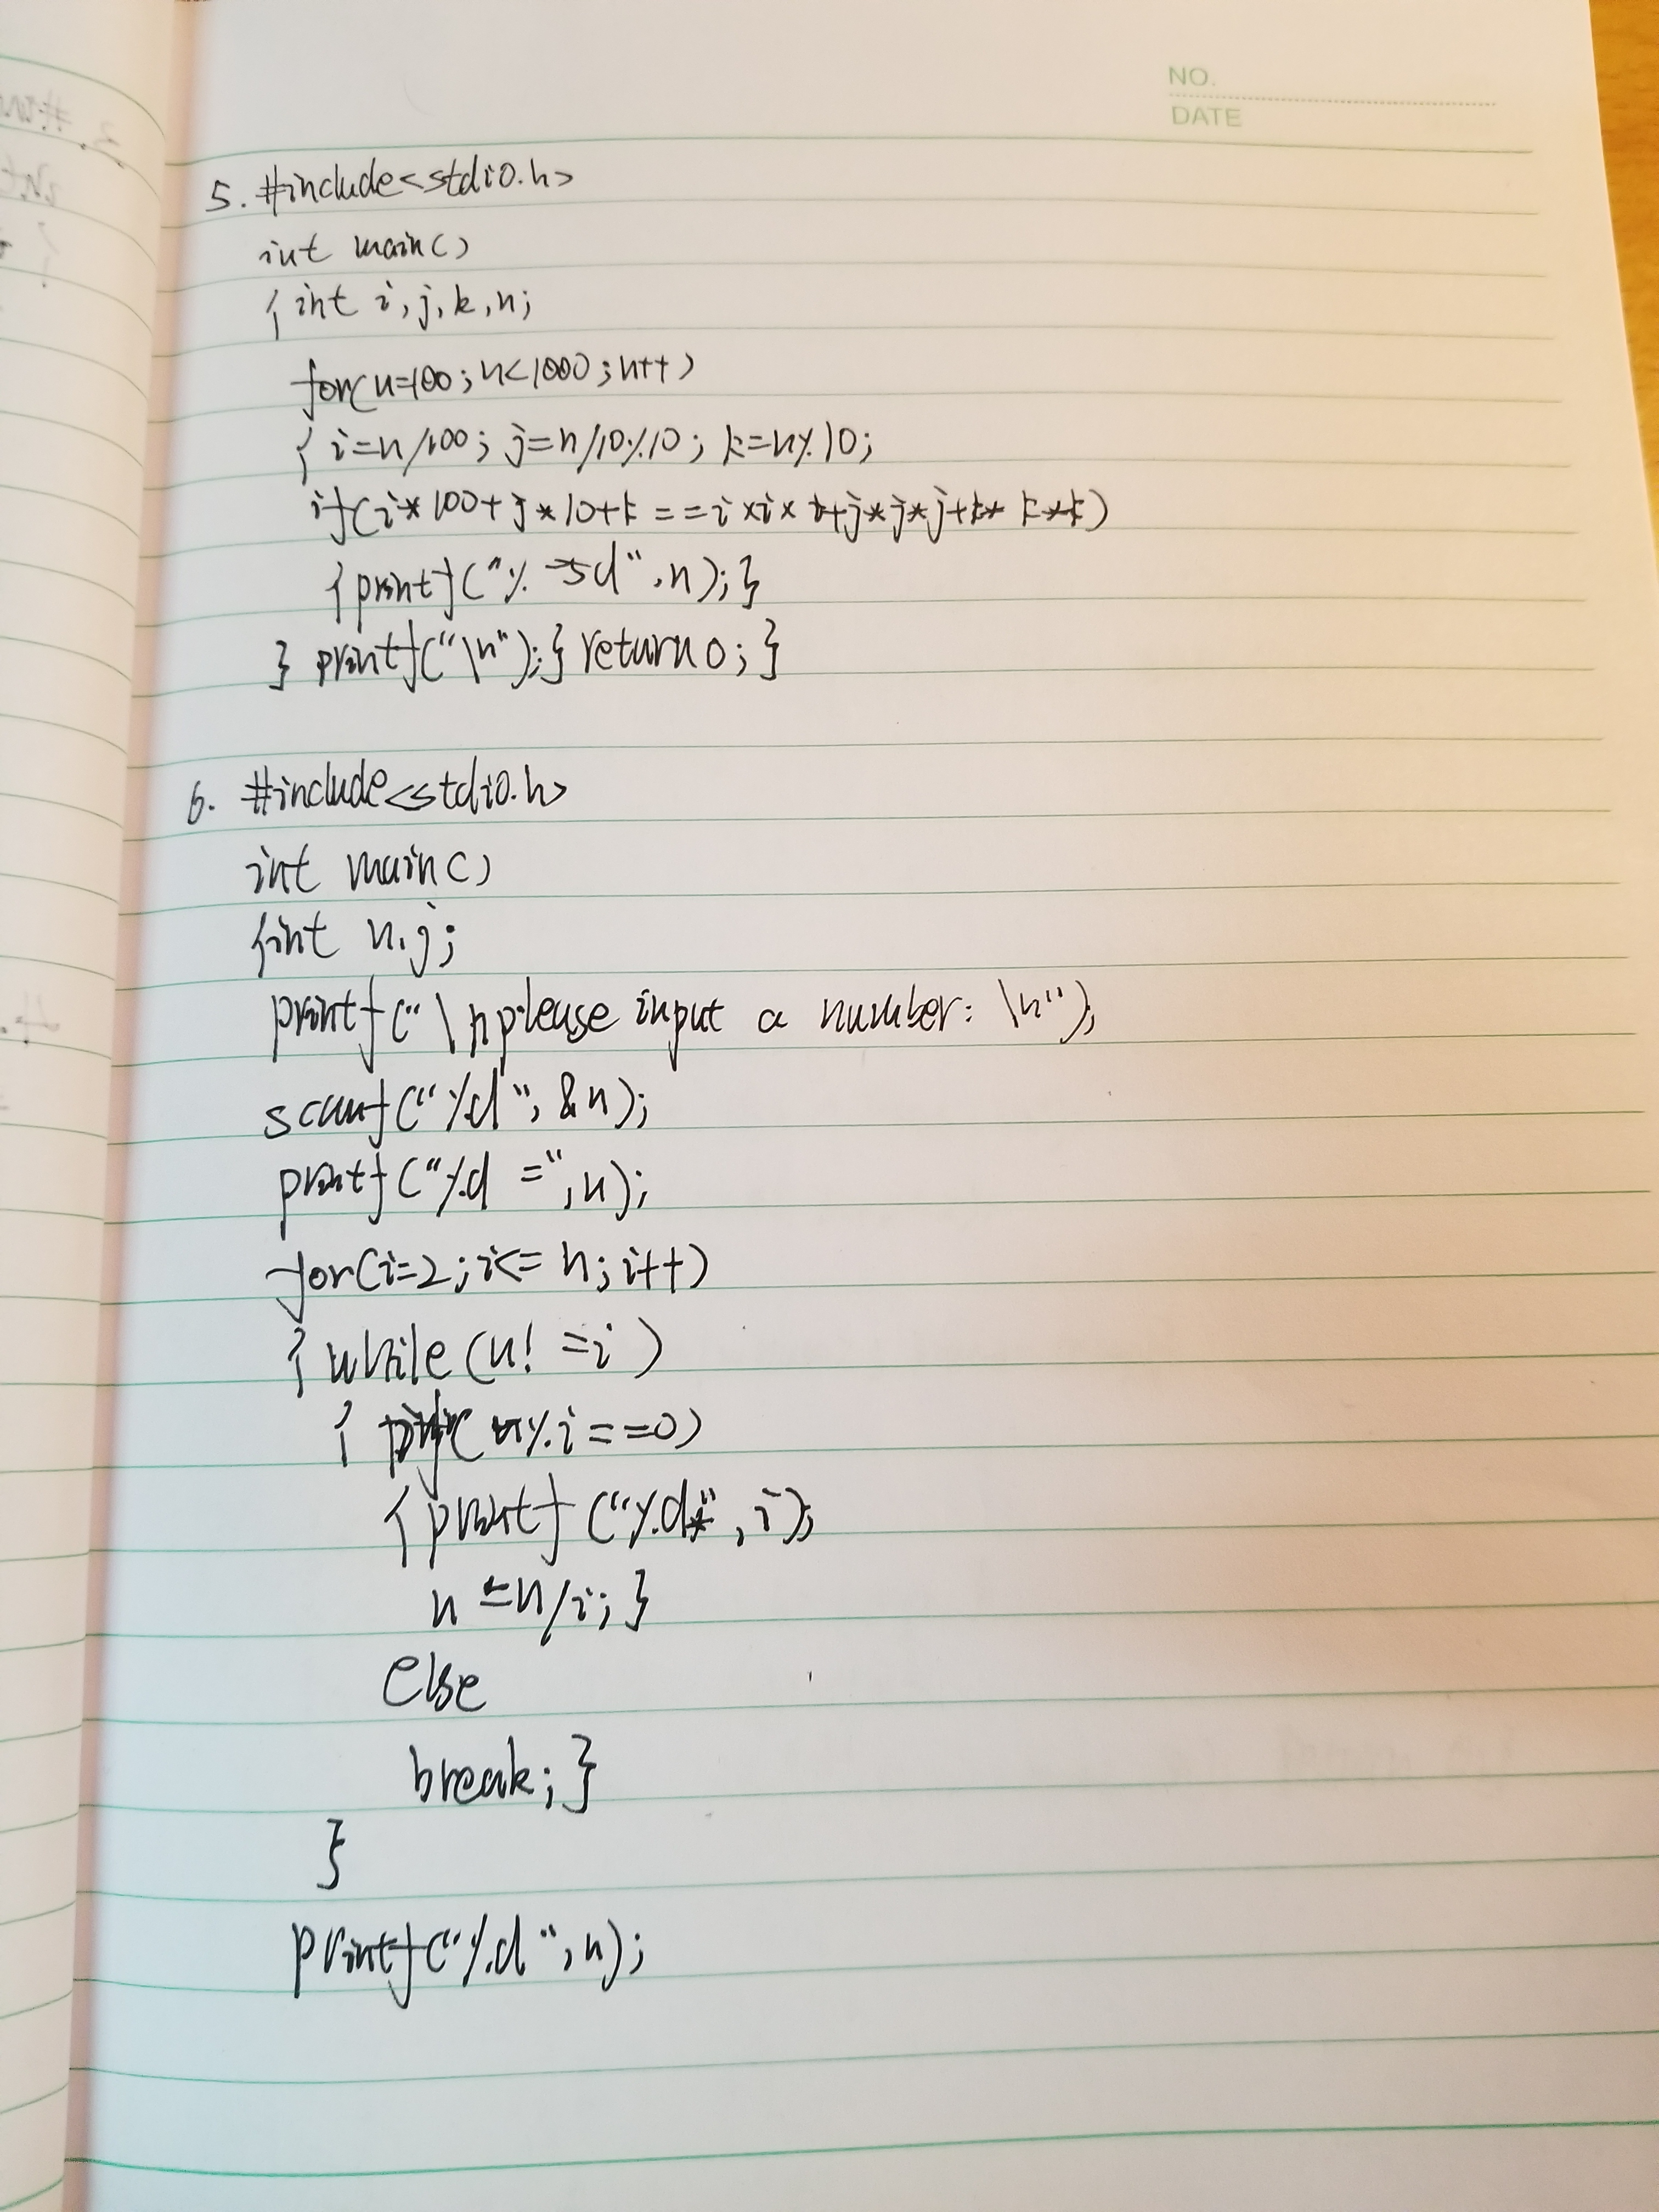 NO.
DATE
5. #include<stdio.h>
int main()
{int i,j,k,n;
for(n=100;n<1000;n++)
{i=n/100; j=n/10%10; k=n%10;
if(i*100+j*10+k==i*i*i+j*j*j+k*k*k)
{printf("%-5d",n);}
} printf("\n");} return 0;}
6. #include<stdio.h>
int main()
{int n,j;
printf("\nplease input a number: \n");
scanf("%d",&n);
printf("%d =",n);
for(i=2;i<=n;i++)
{while(n!=i)
{if(n%i==0)
{printf("%d*",i);
n=n/i;}
else
break;}
}
printf("%d",n);